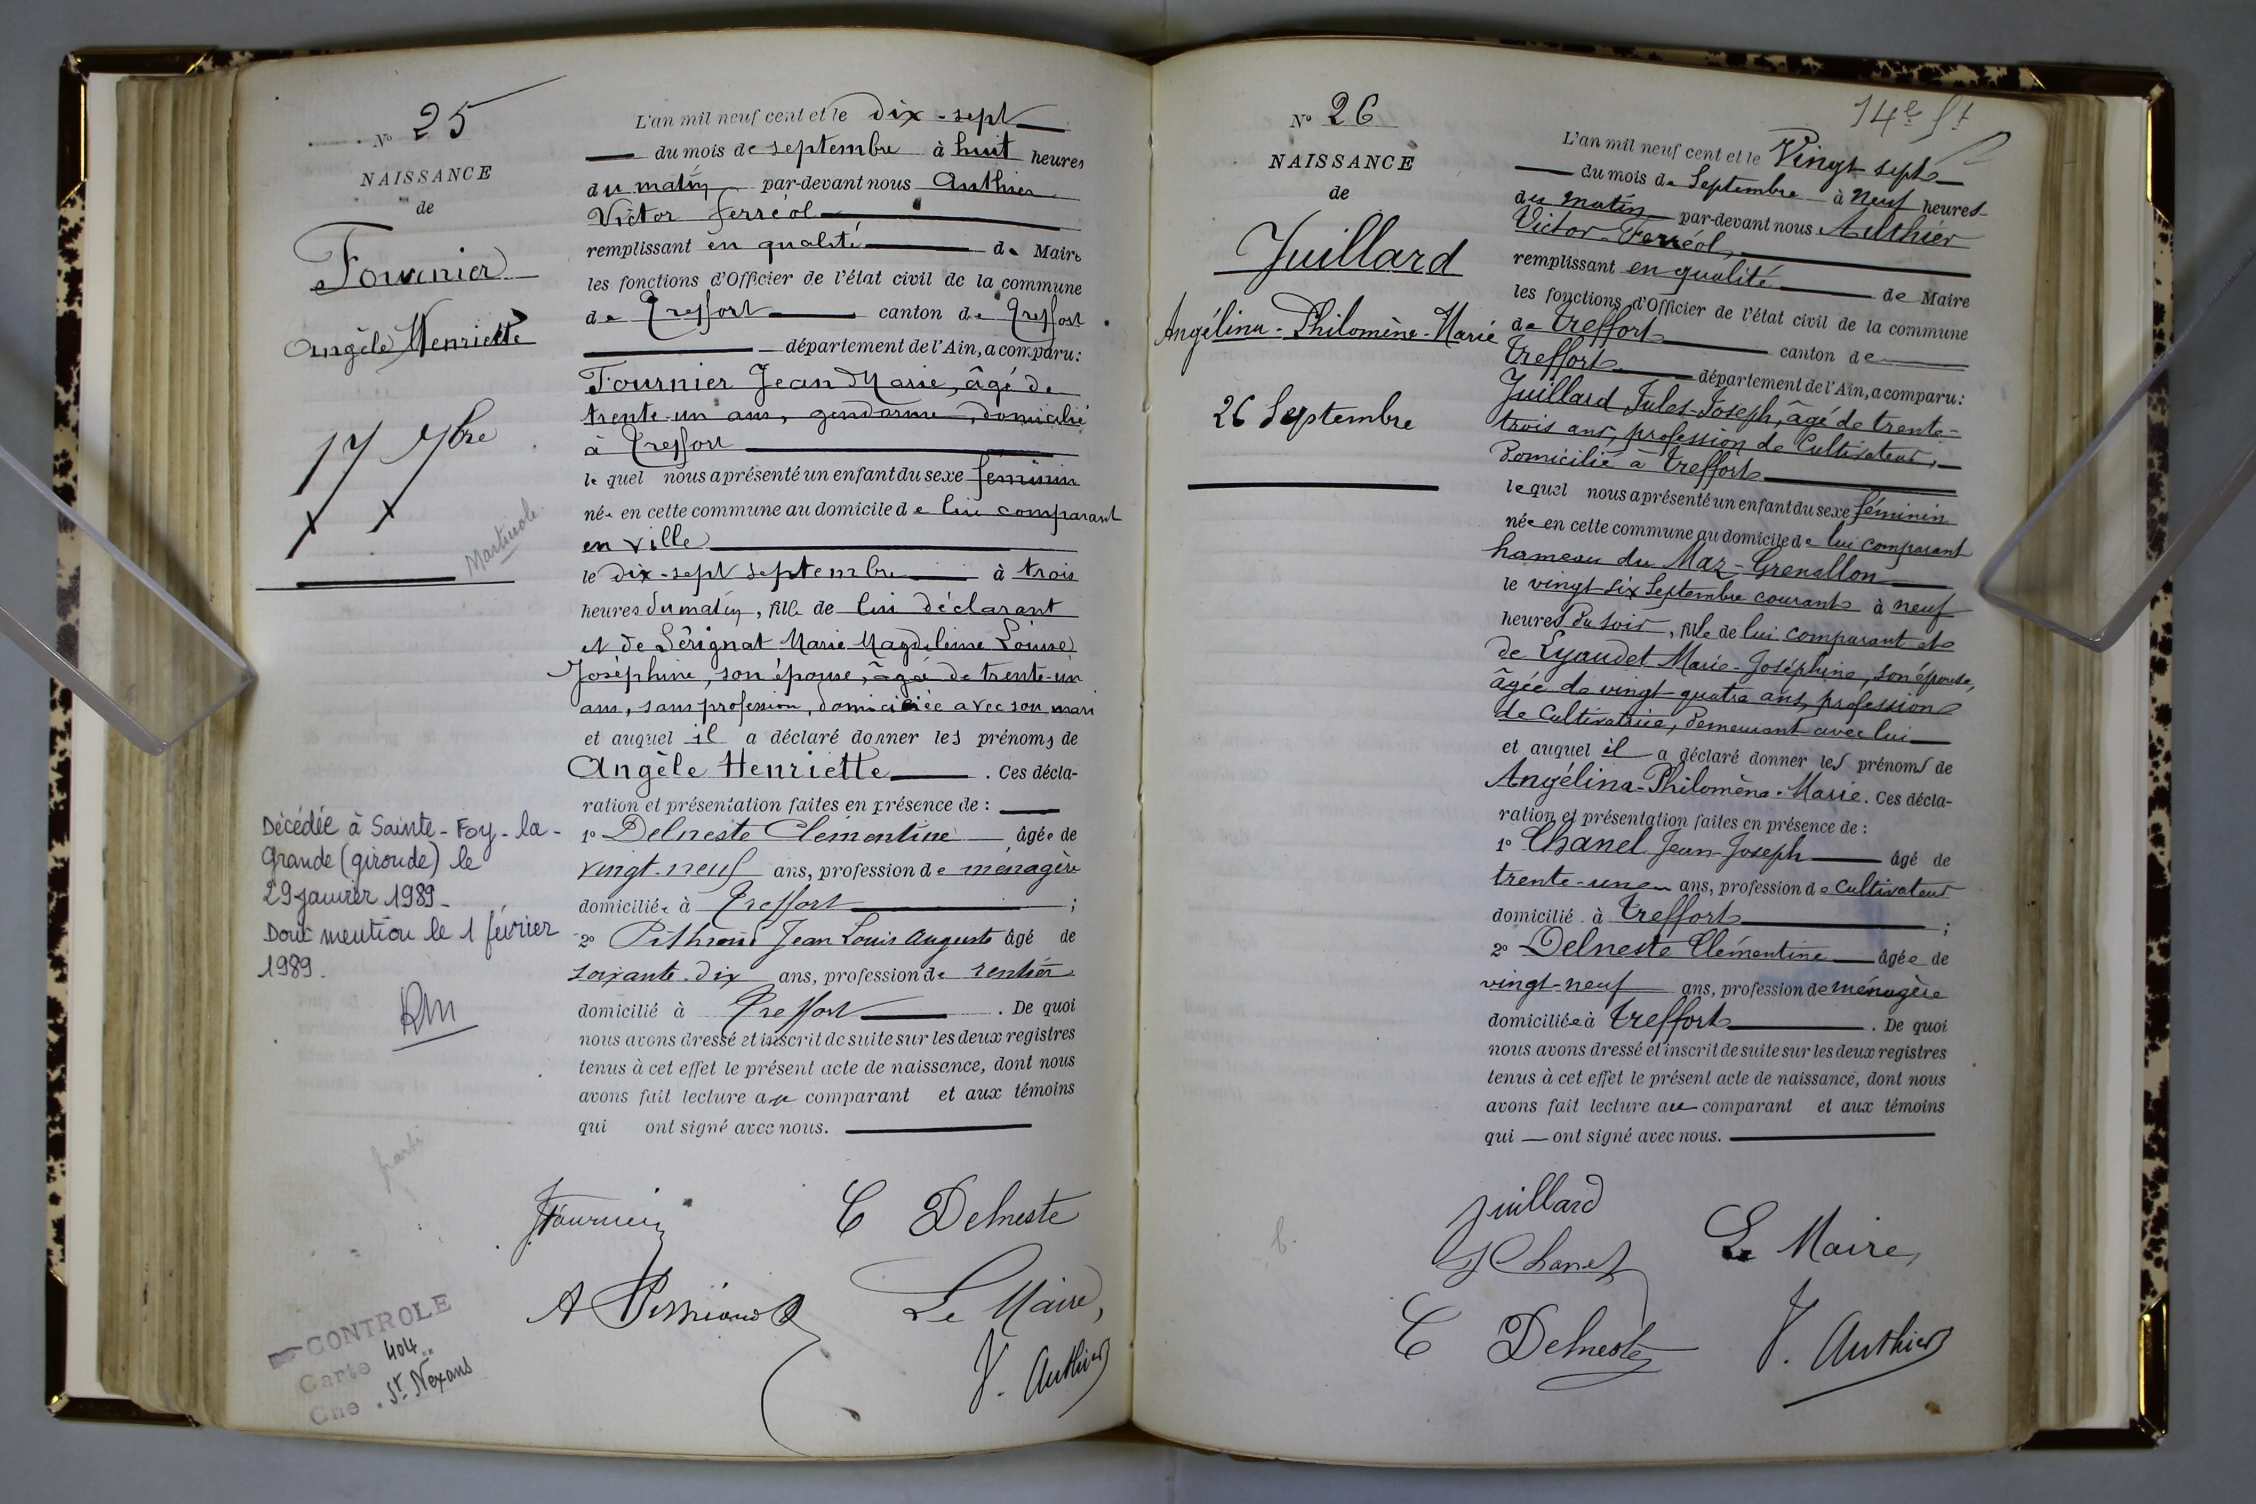 No 25
NAISSANCE
de
Fournier
Angèle Henriette
17 7bre
Martinole
Décédée à Sainte-Foy-la-
Grande (gironde) le
29 janvier 1989.
Dont mention le 1 février
1989.
parti
CONTROLE
Carte 404
Cne St Nexans
L'an mil neuf cent et le dix-sept
du mois de septembre à huit heures
du matin par-devant nous Authier
Victor Ferréol
remplissant en qualité de Maire
les fonctions d'Officier de l'état civil de la commune
de Treffort canton de Treffort
département de l'Ain, a comparu:
Fournier Jean Marie, âgé de
trente-un ans, gendarme, domicilié
à Treffort
lequel nous a présenté un enfant du sexe féminin
née en cette commune au domicile de lui comparant
en ville
le dix-sept septembre à trois
heures du matin, fille de lui déclarant
et de Sérignat Marie Magdeleine Louise
Joséphine, son épouse, âgée de trente-un
ans, sans profession, domiciliée avec son mari
et auquel il a déclaré donner les prénoms de
Angèle Henriette. Ces décla-
ration et présentation faites en présence de :
1º Delneste Clémentine âgée de
vingt-neuf ans, profession de ménagère
domiciliée à Treffort ;
2º Jean Louis Auguste âgé de
soixante-dix ans, profession de rentier
domicilié à Treffort. De quoi
nous avons dressé et inscrit de suite sur les deux registres
tenus à cet effet le présent acte de naissance, dont nous
avons fait lecture au comparant et aux témoins
qui ont signé avec nous.
Fournier C Delneste
A Le Maire,
V. Authier
No 26
NAISSANCE
de
Juillard
Angélina-Philomène-Marie
26 Septembre
14e ft
L'an mil neuf cent et le Vingt sept
du mois de Septembre à Neuf heures
du matin par-devant nous Authier
Victor-Ferréol,
remplissant en qualité de Maire
les fonctions d'Officier de l'état civil de la commune
de Treffort canton de
Treffort département de l'Ain, a comparu:
Juillard Jules-Joseph, âgé de trente-
trois ans, profession de Cultivateur,
Domicilié à Treffort
lequel nous a présenté un enfant du sexe féminin
née en cette commune au domicile de lui comparant
hameau du Maz-Grenallon
le vingt six Septembre courant à neuf
heures Du soir, fille de lui comparant et
de Lyaudet Marie-Joséphine, son épouse,
âgée de vingt quatre ans, profession
de Cultivatrice, Demeurant avec lui
et auquel il a déclaré donner les prénoms de
Angélina-Philomène-Marie. Ces décla-
ration et présentation faites en présence de :
1º Chanel Jean-Joseph âgé de
trente-un ans, profession de Cultivateur
domicilié à Treffort ;
2º Delneste Clémentine âgée de
vingt-neuf ans, profession de ménagère
domiciliée à Treffort. De quoi
nous avons dressé et inscrit de suite sur les deux registres
tenus à cet effet le présent acte de naissance, dont nous
avons fait lecture au comparant et aux témoins
qui ont signé avec nous.
Juillard
J Chanel Le Maire,
C Delneste V. Authier